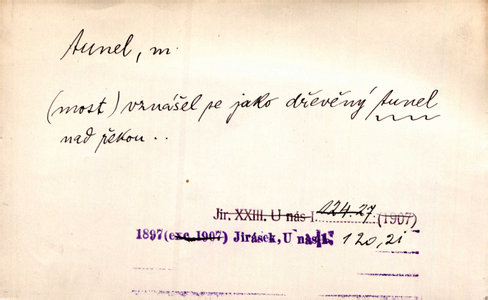 tunel, m.
(most) vznášel se jako dřevěný tunel
nad řekou..
Jir. XXIII. U nás I. 124.27 (1907)
1897 (exc. 1907) Jirásek, U nás I. 120, 21